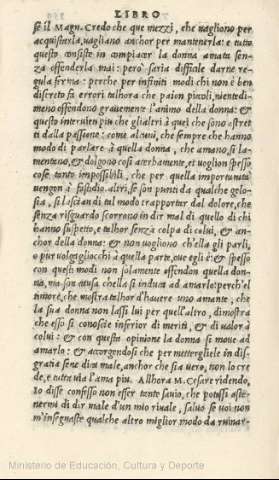 LIBRO
se il Magn. Credo che que mezzi, che uagliono per
acquistarla, uagliano anchor per mantenerla: e tutto
questo consiste in compiacer la donna amata senza
offenderla mai: però saria difficile darne re-
gula ferma: perche per infiniti modi chi non è ben
discreto fa errori talhora che paion piccoli, nientedi-
meno offendono grauemente l'animo della donna: &
questo interuien piu che gli altri à quei che sono astretti
dalla passione: come alcuni, che sempre che hanno
modo di parlare à quella donna, che amano, si la-
mentano, & dolgono così acerbamente, et uoglion spesso
cose tanto impossibili, che per quella importunità
uengon à fastidio. altri, se son punti da qualche gelo-
sia, si lascian di tal modo trapportar dal dolore, che
senza risguardo scorrono in dir mal di quello di chi
hanno suspetto, e talhor senza colpa di colui, & an-
chor della donna: & non uogliono ch'ella gli parli,
o pur uolga gli occhi à quella parte, oue egli è: & spesso
con questi modi non solamente offendon quella don-
na, ma son causa ch'ella si induca ad amarlo: perch'el
timore, che mostra talhor d'hauere uno amante, che
la sua donna non lassi lui per quell'altro, dimostra
che esso si conosce inferior di meriti, & di ualor à
colui: & con questa opinione la donna si moue ad
amarlo: & accorgendosi che per mettergliele in dis-
gratia sene dica male, anchor che sia uero, non lo cre-
de, e tuttauia l'ama piu. Allhora M. Cesare ridendo,
Io disse confesso non esser tanto sauio, che potessi aste-
nermi di dir male d'un mio riuale, saluo se uoi non
m'insegnaste qualche altro miglior modo da ruinar-
Ministerio de Educación, Cultura y Deporte